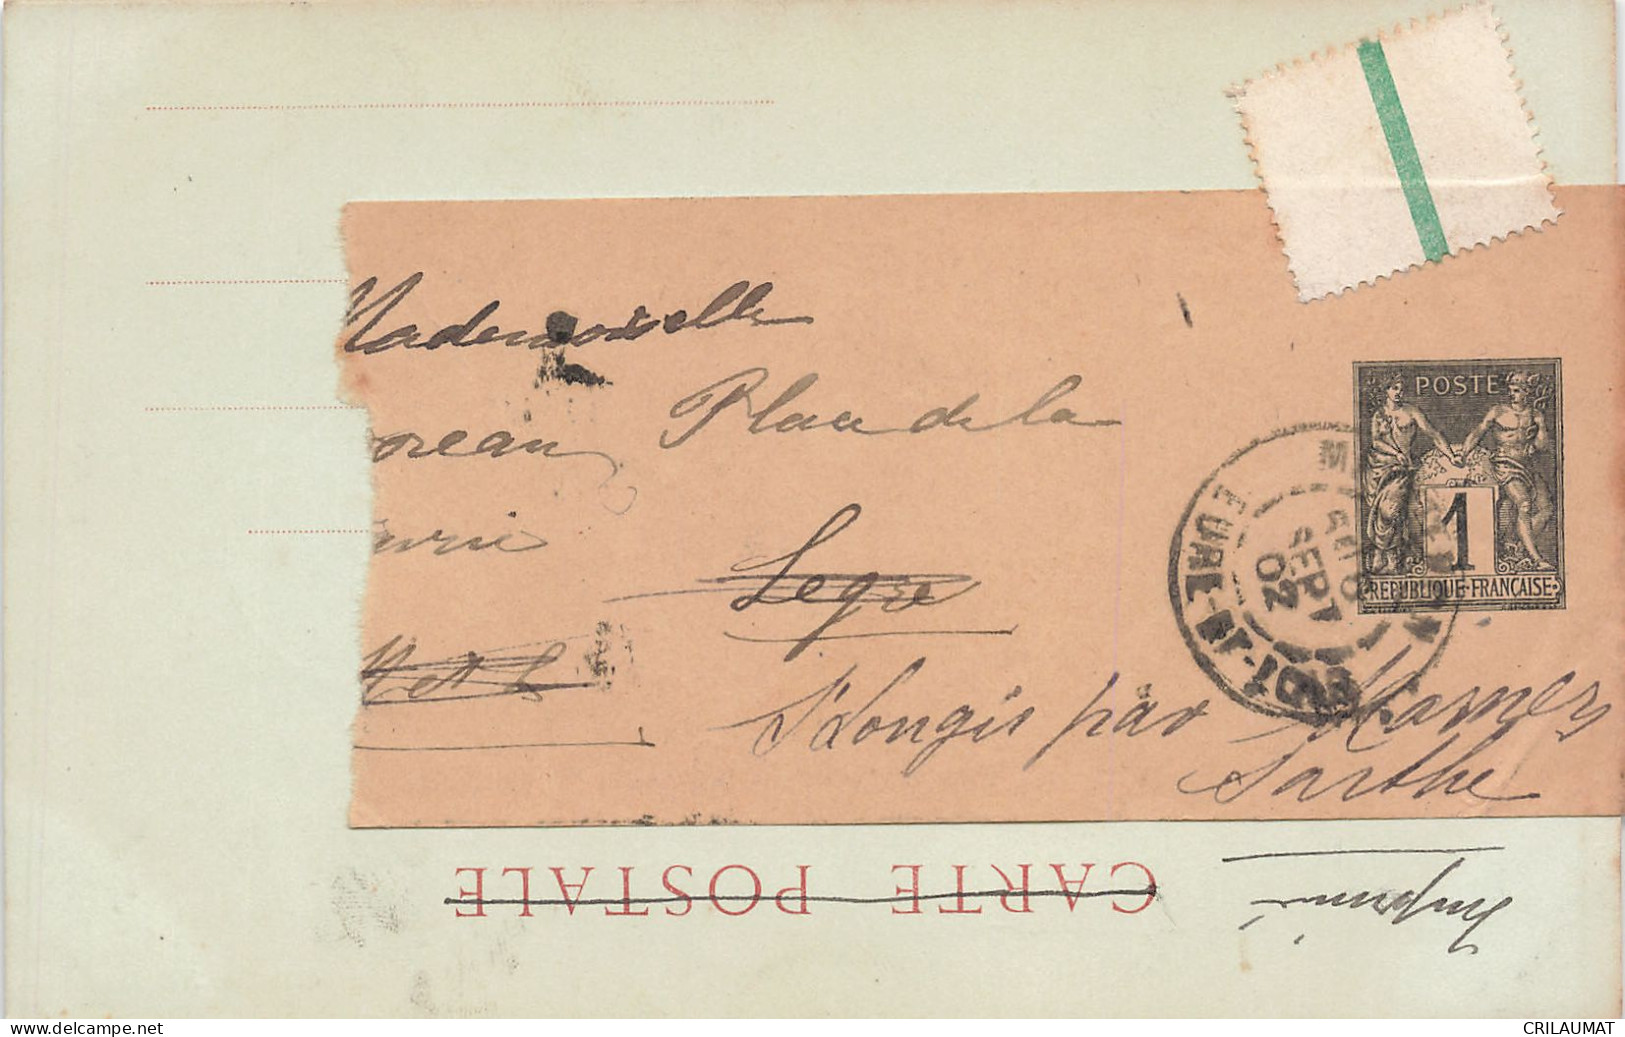 Mademoiselle
oreau Place de la
Legre
St Longis par Mamers
Sarthe
POSTE
1
REPUBLIQUE FRANÇAISE
EURE-ET-LOIR
SEPT
02
CARTE POSTALE
Imprimé
www.delcampe.net
CRILAUMAT